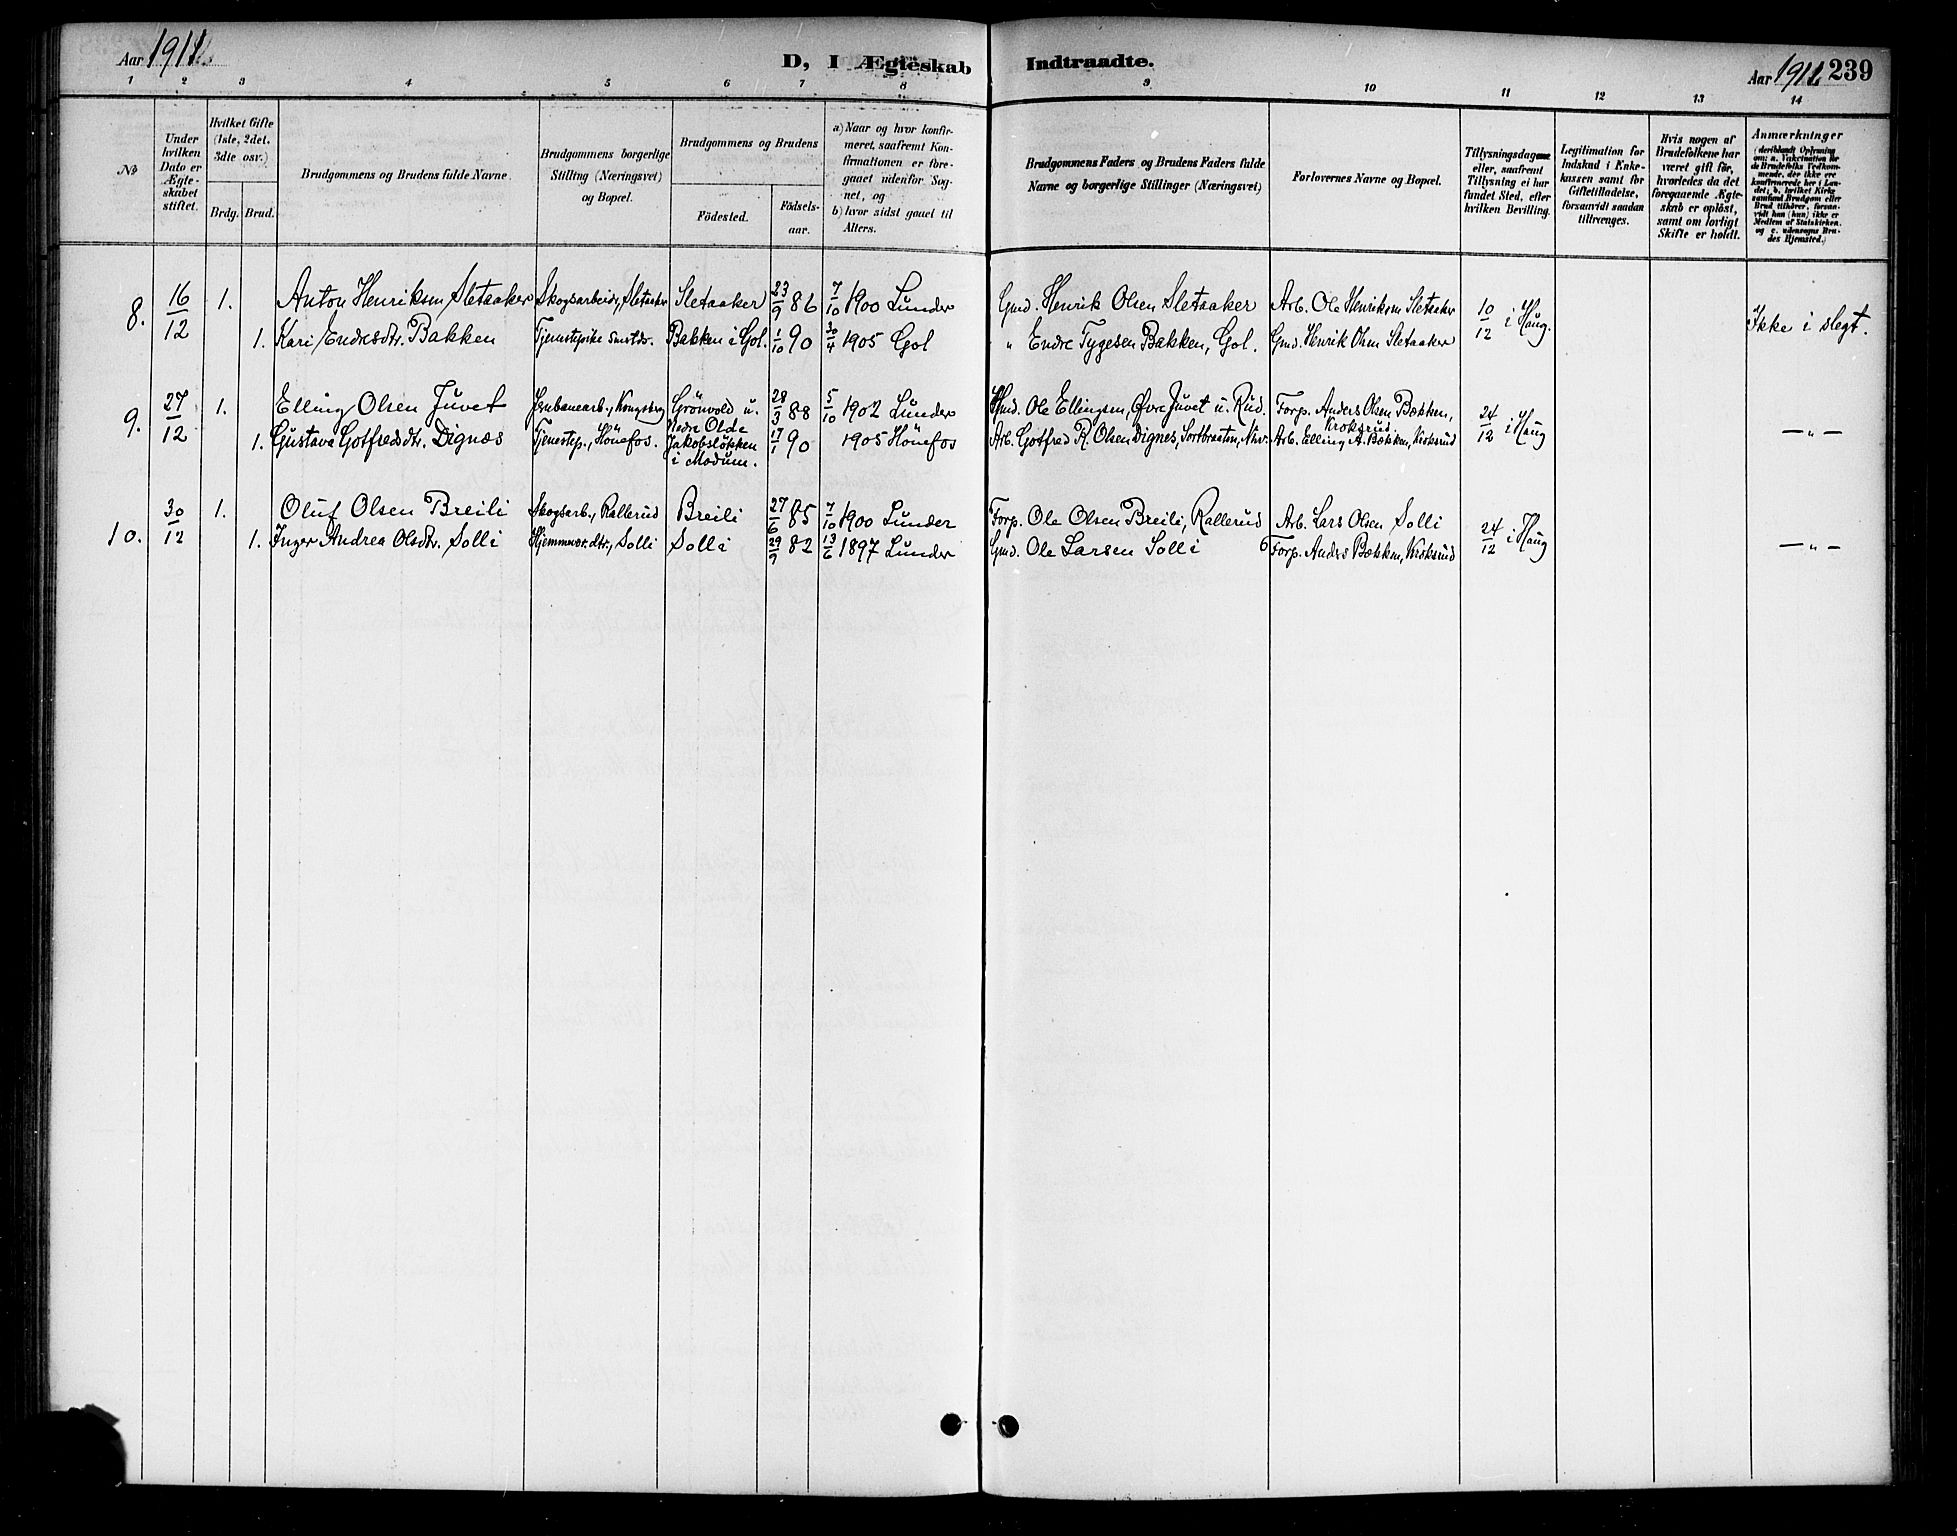 Aar 1911
D, I Ægteskab Indtraadte.
Aar 1911 239
1 2 3 4 5 6 7 8 9 10 11 12 13 14
No
Under
hvilken
Dato er
Ægte-
skabet
stiftet.
Hvilket Gifte
(1ste, 2det,
3die osv.)
Brdg. Brud.
Brudgommens og Brudens fulde Navne.
Brudgommens borgerlige
Stilling (Næringsvei)
og Bopæl.
Brudgommens og Brudens
Födested.
Födsels-
aar.
a) Naar og hvor konfir-
meret, saafremt Kon-
firmationen er fore-
gaaet udenfor Sog-
net, og
b) hvor sidst gaaet til
Alters.
Brudgommens Faders og Brudens Faders fulde
Navne og borgerlige Stillinger (Næringsvei)
Forlovernes Navne og Bopæl.
Tillysningsdagene
eller, saafremt
Tillysning ei har
fundet Sted, efter
hvilken Bevilling.
Legitimation for
Indskud i Enke-
kassen samt for
Giftetilladelse,
forsaavidt saadan
tiltrænges.
Hvis nogen af
Brudefolkene har
været gift før,
hvorledes da det
foregaaende Ægte-
skab er opløst,
samt om lovligt
Skifte er holdt.
Anmærkninger
(deriblandt Oplysning
om: a. Vakcination for
de Brudefolks Vedkom-
mende, der ikke ere
konfirmerede her i Lan-
det; b. hvilket Kirke-
samfund Brudgom eller
Brud tilhører, forsaa-
vidt han (hun) ikke er
Medlem af Statskirken,
og c. udensogns Bru-
des Hjemsted.)
8. 16/12 1. Anton Henriksen Sletaaker Skogsarbeider, Sletaaker Sletaaker 23/9 86 7/10 1900 Lunder Gmd. Henrik Olsen Sletaaker Arb. Ole Henriksen Sletaaker 10/12 i Haug. Ikke i slegt.
1. Kari Endresdtr. Bakken Tjenestepike Bakken i Gol. 1/10 90 30/4 1905 Gol " Endre Tygesen Bakken, Gol. Gmd. Henrik Olsen Sletaaker
9. 27/12 1. Elling Olsen Juvet Jernbanearb., Kongsberg Grönvold u. 28/3 88 5/10 1902 Lunder Hmd. Ole Ellingsen, Øvre Juvet u. Rud. Forp. Anders Olsen Bækken, 24/12 i Haug — „ —
Nedre Olde Kroksrud.
1. Gustava Gotfredsdtr. Dignæs Tjenestep., Hönefos. Jakobsløkken 17/1 90 1905 Hönefos Arb. Gotfred R. Olsen Dignes, Sortbraaten, Arb. Elling A. Bækken, Kroksrud
i Modum.
10. 30/12 1. Oluf Olsen Breili Skogsarb., Rallerud Breili 27/6 85 7/10 1900 Lunder Forp. Ole Olsen Breili, Rallerud Arb. Lars Olsen Solli 24/12 i Haug — „ —
1. Inger Andrea Olsdtr. Solli Hjemmevær. dtr., Solli Solli 29/9 82 13/6 1897 Lunder Gmd. Ole Larsen Solli Forp. Anders Bækken, Kroksrud